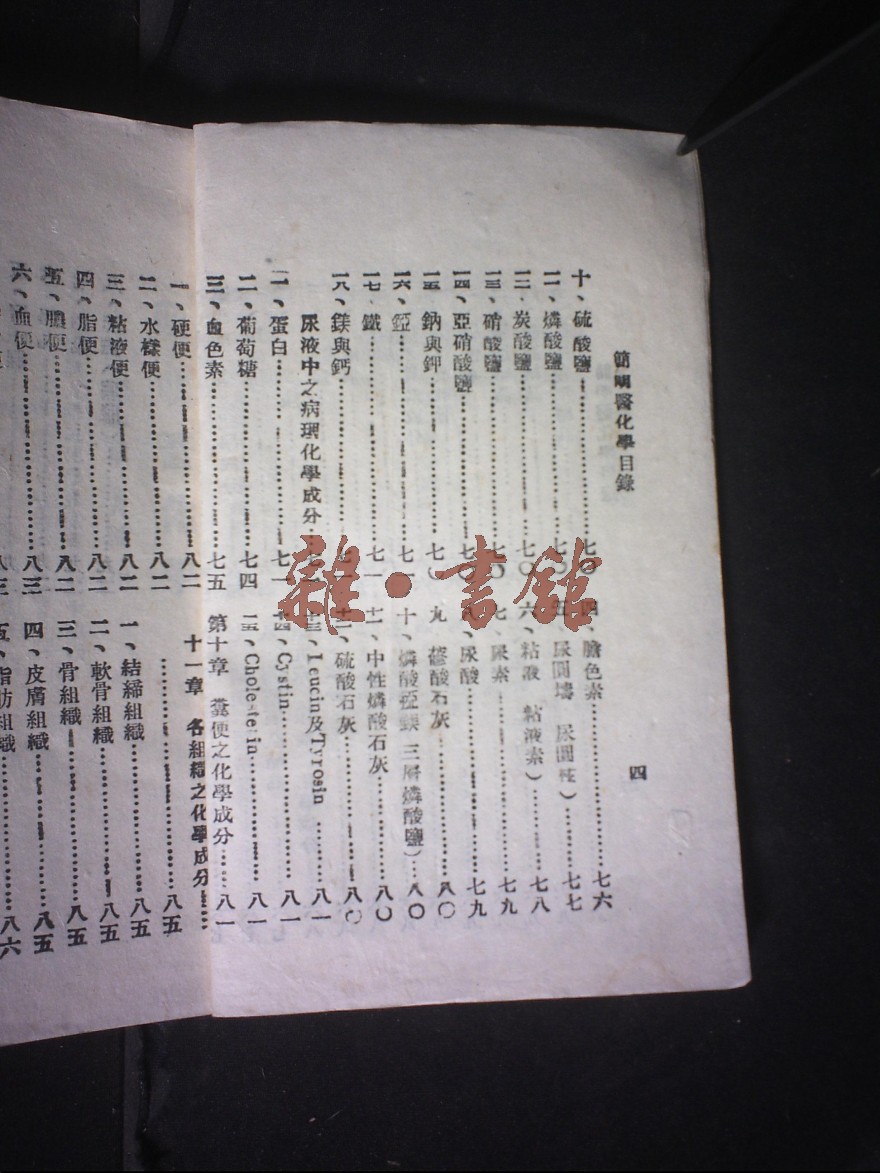 簡明醫化學目錄
四
十、硫酸鹽……七〇
二、燐酸鹽……七〇
三、炭酸鹽……七〇
三、硝酸鹽……七〇
四、亞硝酸鹽……七〇
五、鈉與鉀……七〇
六、……七
七、鐵……七一
八、鎂與鈣
尿液中之病理化學成分
一、蛋白……七一
二、葡萄糖……七四
三、血色素……七五
四、膽色素……七六
五、尿閭壔 尿閭䂎）……七七
六、粘液 粘液素）……七八
七、尿素……七九
八、尿酸……七九
九 蓚酸石灰……八〇
十、燐酸 三層燐酸鹽）…八〇
二、中性燐酸石灰……八〇
三、硫酸石灰……八〇
三、Leucin及Tyrosin……八一
四、Cystin……八一
五、Cholesterin……八一
第十章 糞便之化學成分……八一
一、硬便……八二
二、水樣便……八二
三、粘液便……八二
四、脂便……八二
五、膿便……八二
六、血便……八三
八三
十一章 各組織之化學成分……
……八五
一、結締組織……八五
二、軟骨組織……八五
三、骨組織……八五
四、皮膚組織……八五
五、脂肪組織……八六
雜·書館